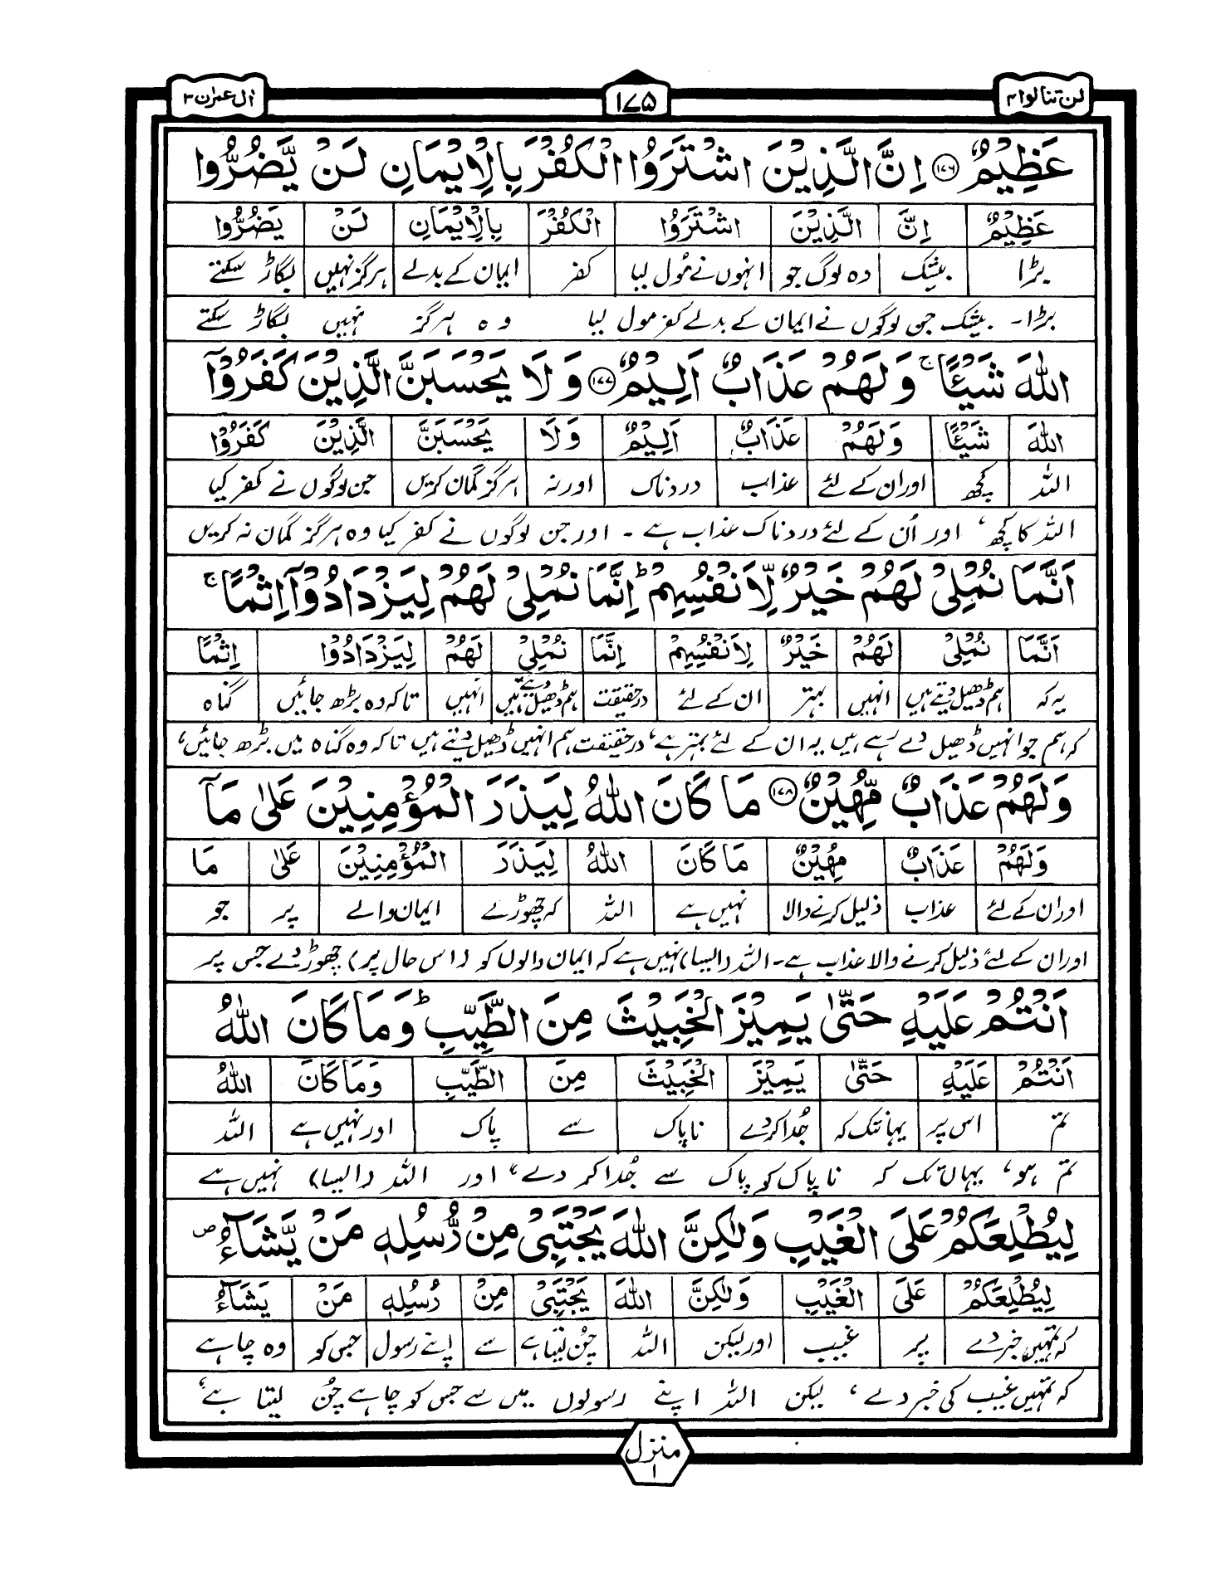 لن تنالوا ۴
۱۷۵
اٰل عمرٰن ۳
عَظِیْمٌ ﴿۱۷۶﴾ اِنَّ الَّذِیْنَ اشْتَرَوُا الْکُفْرَ بِالْاِیْمَانِ لَنْ یَّضُرُّوا
عَظِیْمٌ اِنَّ الَّذِیْنَ اشْتَرَوُا الْکُفْرَ بِالْاِیْمَانِ لَنْ یَضُرُّوا
بڑا بیشک وہ لوگ جو انہوں نے مُول لیا کفر ایمان کے بدلے ہرگز نہیں بگاڑ سکتے
بڑا۔ بیشک جن لوگوں نے ایمان کے بدلے کفر مول لیا وہ ہرگز نہیں بگاڑ سکتے
اللّٰہَ شَیْئًا ۚ وَلَهُمْ عَذَابٌ اَلِیْمٌ ﴿۱۷۷﴾ وَلَا یَحْسَبَنَّ الَّذِیْنَ کَفَرُوْۤا
اللّٰہَ شَیْئًا وَلَهُمْ عَذَابٌ اَلِیْمٌ وَلَا یَحْسَبَنَّ الَّذِیْنَ کَفَرُوْا
اللہ کچھ اور ان کے لئے عذاب دردناک اور نہ ہرگز گمان کریں جن لوگوں نے کفر کیا
اللہ کا کچھ، اور اُن کے لئے دردناک عذاب ہے ۔ اور جن لوگوں نے کفر کیا وہ ہرگز گمان نہ کریں
اَنَّمَا نُمْلِیْ لَهُمْ خَیْرٌ لِّاَنْفُسِهِمْ ؕ اِنَّمَا نُمْلِیْ لَهُمْ لِیَزْدَادُوْۤا اِثْمًا ۚ
اَنَّمَا نُمْلِیْ لَهُمْ خَیْرٌ لِاَنْفُسِهِمْ اِنَّمَا نُمْلِیْ لَهُمْ لِیَزْدَادُوْا اِثْمًا
یہ کہ ہم ڈھیل دیتے ہیں انہیں بہتر ان کے لئے درحقیقت ہم ڈھیل دیتے ہیں انہیں تاکہ وہ بڑھ جائیں گناہ
کہ ہم جو انہیں ڈھیل دے رہے ہیں یہ ان کے لئے بہتر ہے، درحقیقت ہم انہیں ڈھیل دیتے ہیں تاکہ وہ گناہ میں بڑھ جائیں،
وَلَهُمْ عَذَابٌ مُّهِیْنٌ ﴿۱۷۸﴾ مَا کَانَ اللّٰہُ لِیَذَرَ الْمُؤْمِنِیْنَ عَلٰی مَاۤ
وَلَهُمْ عَذَابٌ مُهِیْنٌ مَا کَانَ اللّٰہُ لِیَذَرَ الْمُؤْمِنِیْنَ عَلٰی مَا
اور ان کے لئے عذاب ذلیل کرنے والا نہیں ہے اللہ کہ چھوڑے ایمان والے پر جو
اور ان کے لئے ذلیل کرنے والا عذاب ہے۔ اللہ (ایسا) نہیں ہے کہ ایمان والوں کو (اس حال پر) چھوڑ دے جس پر
اَنْتُمْ عَلَیْهِ حَتّٰی یَمِیْزَ الْخَبِیْثَ مِنَ الطَّیِّبِ ؕ وَمَا کَانَ اللّٰہُ
اَنْتُمْ عَلَیْهِ حَتّٰی یَمِیْزَ الْخَبِیْثَ مِنَ الطَّیِّبِ وَمَا کَانَ اللّٰہُ
تم اس پر یہانتک کہ جُدا کر دے ناپاک سے پاک اور نہیں ہے اللہ
تم ہو، یہاں تک کہ ناپاک کو پاک سے جُدا کر دے، اور اللہ (ایسا) نہیں ہے
لِیُطْلِعَکُمْ عَلَی الْغَیْبِ وَلٰکِنَّ اللّٰہَ یَجْتَبِیْ مِنْ رُّسُلِهٖ مَنْ یَّشَآءُ ۪
لِیُطْلِعَکُمْ عَلَی الْغَیْبِ وَلٰکِنَّ اللّٰہَ یَجْتَبِیْ مِنْ رُسُلِهٖ مَنْ یَشَآءُ
کہ تمہیں خبر دے پر غیب اور لیکن اللہ چُن لیتا ہے سے اپنے رسول جس کو وہ چاہے
کہ تمہیں غیب کی خبر دے، لیکن اللہ اپنے رسولوں میں سے جس کو چاہے چُن لیتا ہے،
منزل ۱